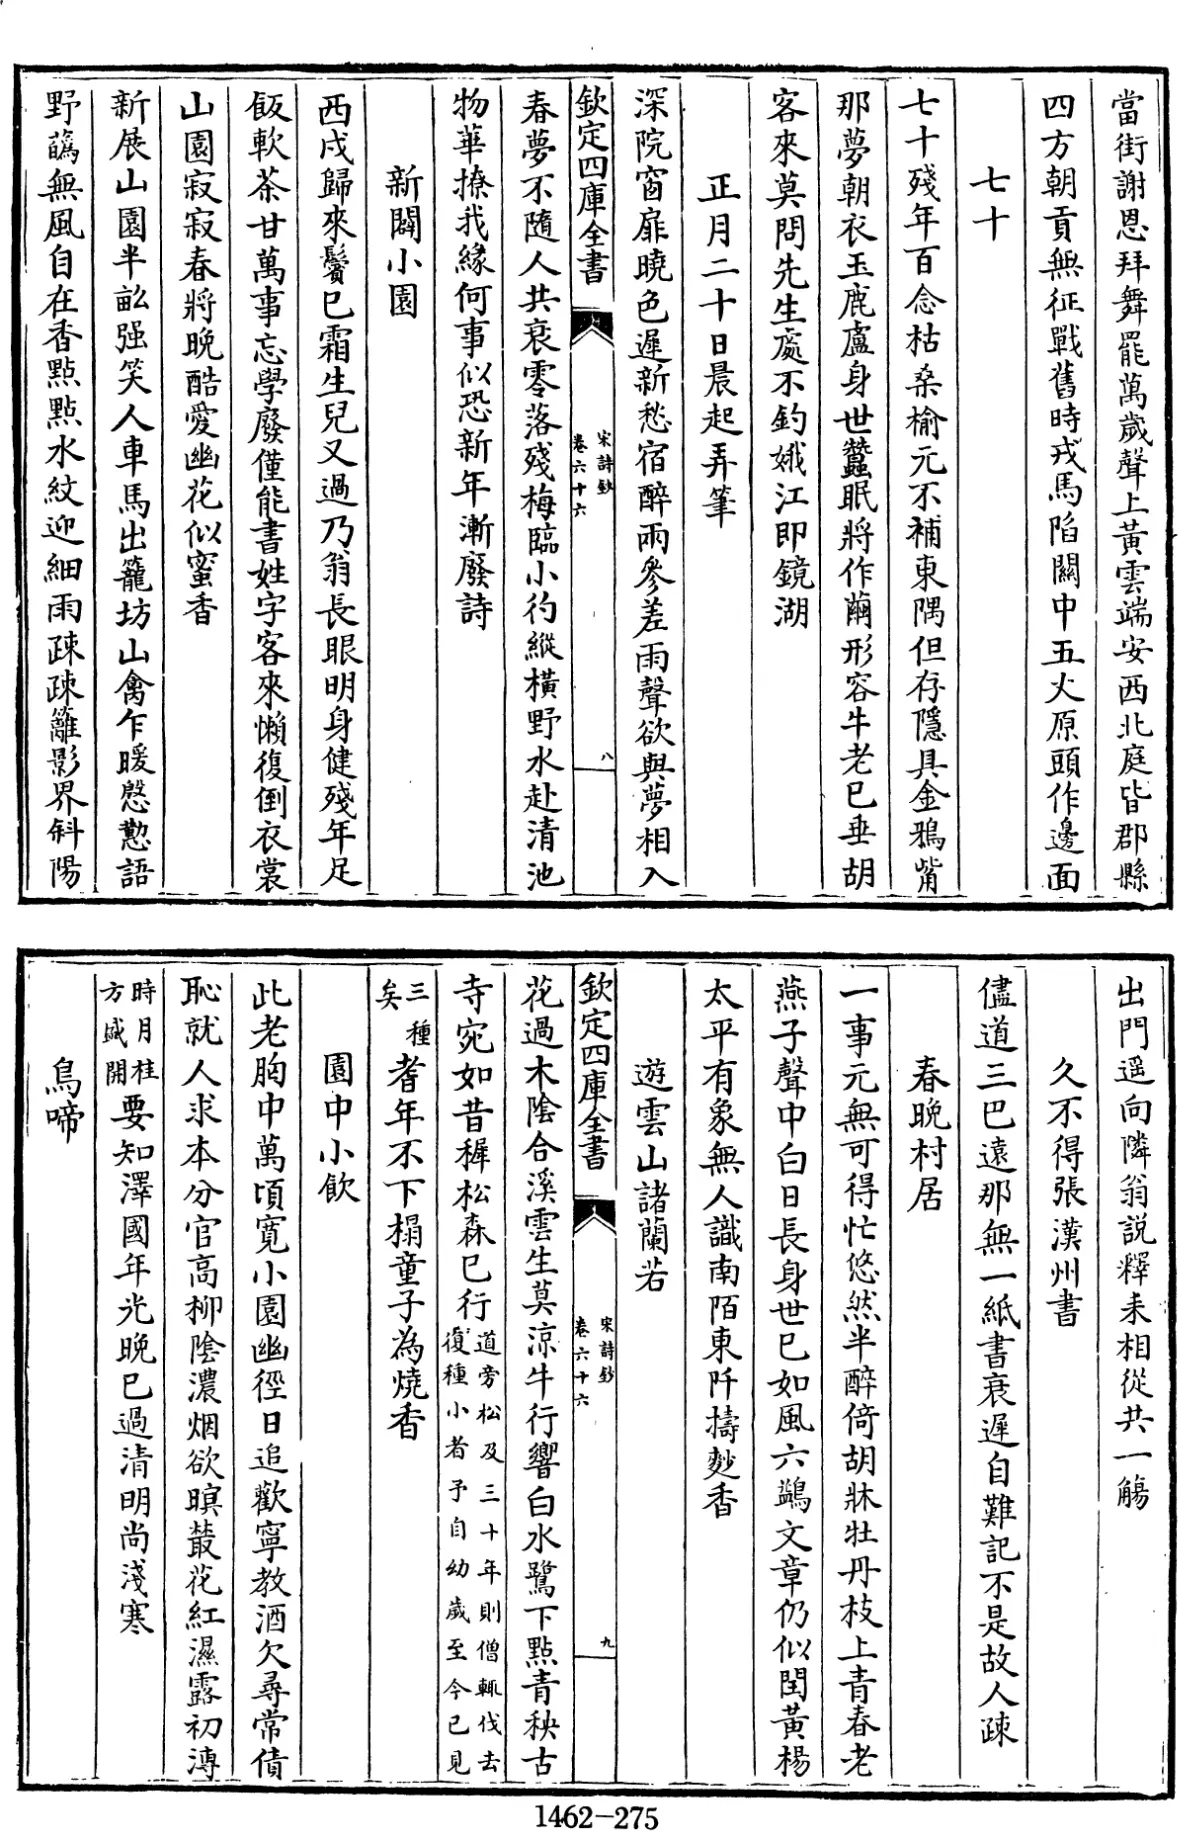 當街謝恩拜舞罷萬歲聲上黃雲端安西北庭皆郡縣
四方朝貢無征戰舊時戎馬陷關中五火原頭作邊面
七十
七十殘年百念枯桑榆元不補東隅但存隱具金鴉觜
那夢朝衣玉鹿盧身世蠶眠將作繭形容牛老已垂胡
客來莫問先生處不釣娥江即鏡湖
正月二十日晨起弄筆
深院窗扉曉色遲新愁宿醉兩參差雨聲欲與夢相入
欽定四庫全書
宋詩鈔
卷六十六
八
春夢不隨人共衰零落殘梅臨小彴縱橫野水赴清池
物華撩我緣何事似恐新年漸廢詩
新闢小園
西戍歸來鬢已霜生兒又過乃翁長眼明身健殘年足
飯軟茶甘萬事忘學廢僅能書姓字客來懶復倒衣裳
山園寂寂春將晚酷愛幽花似蜜香
新展山園半畝强笑人車馬出籠坊山禽乍暖慇懃語
野鷀無風自在香點點水紋迎細雨疎疎籬影界斜陽
出門遥向隣翁説釋耒相從共一觴
久不得張漢州書
儘道三巴遠那無一紙書衰遲自難記不是故人疎
春晩村居
一事元無可得忙悠然半醉倚胡牀牡丹枝上青春老
燕子聲中白日長身世已如風六鷁文章仍似閏黄楊
太平有象無人識南陌東阡擣麨香
遊雲山諸蘭若
欽定四庫全書
宋詩鈔
卷六十六
九
花過木陰合溪雲生莫涼牛行響白水鷺下點青秧古
寺宛如昔稺松森已行道旁松及三十年則僧輒伐去
復種小者予自幼歲至今已見
三種
矣
耆年不下榻童子為燒香
園中小飲
此老胸中萬頃寛小園幽徑日追歡寧教酒欠尋常債
恥就人求本分官高柳陰濃烟欲暝叢花紅濕露初漙
時月桂
方盛開
要知澤國年光晚已過清明尚淺寒
鳥啼
1462-275